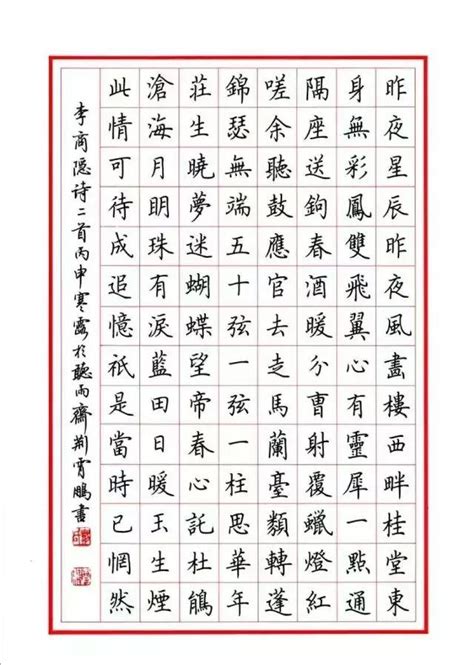 昨夜星辰昨夜風畫樓西畔桂堂東
身無彩鳳雙飛翼心有靈犀一點通
隔座送鉤春酒暖分曹射覆蠟燈紅
嗟余聽鼓應官去走馬蘭臺類轉蓬
錦瑟無端五十弦一弦一柱思華年
莊生曉夢迷蝴蝶望帝春心託杜鵑
滄海月明珠有淚藍田日暖玉生煙
此情可待成追憶祇是當時已惘然
李商隐诗二首丙申寒露於聽雨齋荆霄鵬書